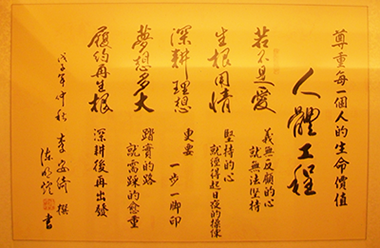 尊重每一個人的生命價值
人體工程
若不是愛
義無反顧的心
就無法堅持
生根開情
堅持的心
就經得起日夜的操練
深耕理想
更要
一步一腳印
夢想多大
踏實的路
就需踩的愈重
履約再生根
深耕後再出發
戊子年仲秋 李 撰
陳 書